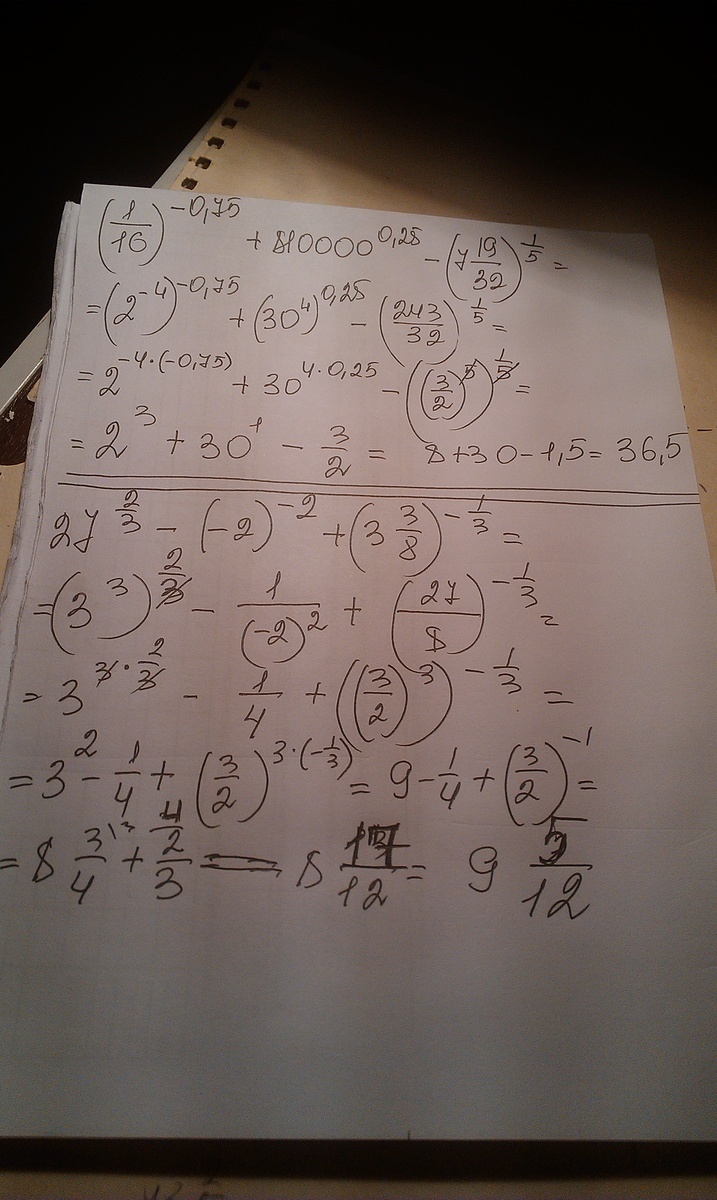 (1/16)^(-0,75) + 810000^(0,25) - (7 19/32)^(1/5) =
= (2^(-4))^(-0,75) + (30^4)^(0,25) - (243/32)^(1/5) =
= 2^(-4·(-0,75)) + 30^(4·0,25) - ((3/2)^5)^(1/5) =
= 2^3 + 30^1 - 3/2 = 8+30-1,5= 36,5
27^(2/3) - (-2)^(-2) + (3 3/8)^(-1/3) =
= (3^3)^(2/3) - 1/(-2)^2 + (27/8)^(-1/3) =
= 3^(3·2/3) - 1/4 + ((3/2)^3)^(-1/3) =
= 3^2 - 1/4 + (3/2)^(3·(-1/3)) = 9 - 1/4 + (3/2)^(-1) =
= 8 3/4 + 2/3 = 8 17/12 = 9 5/12